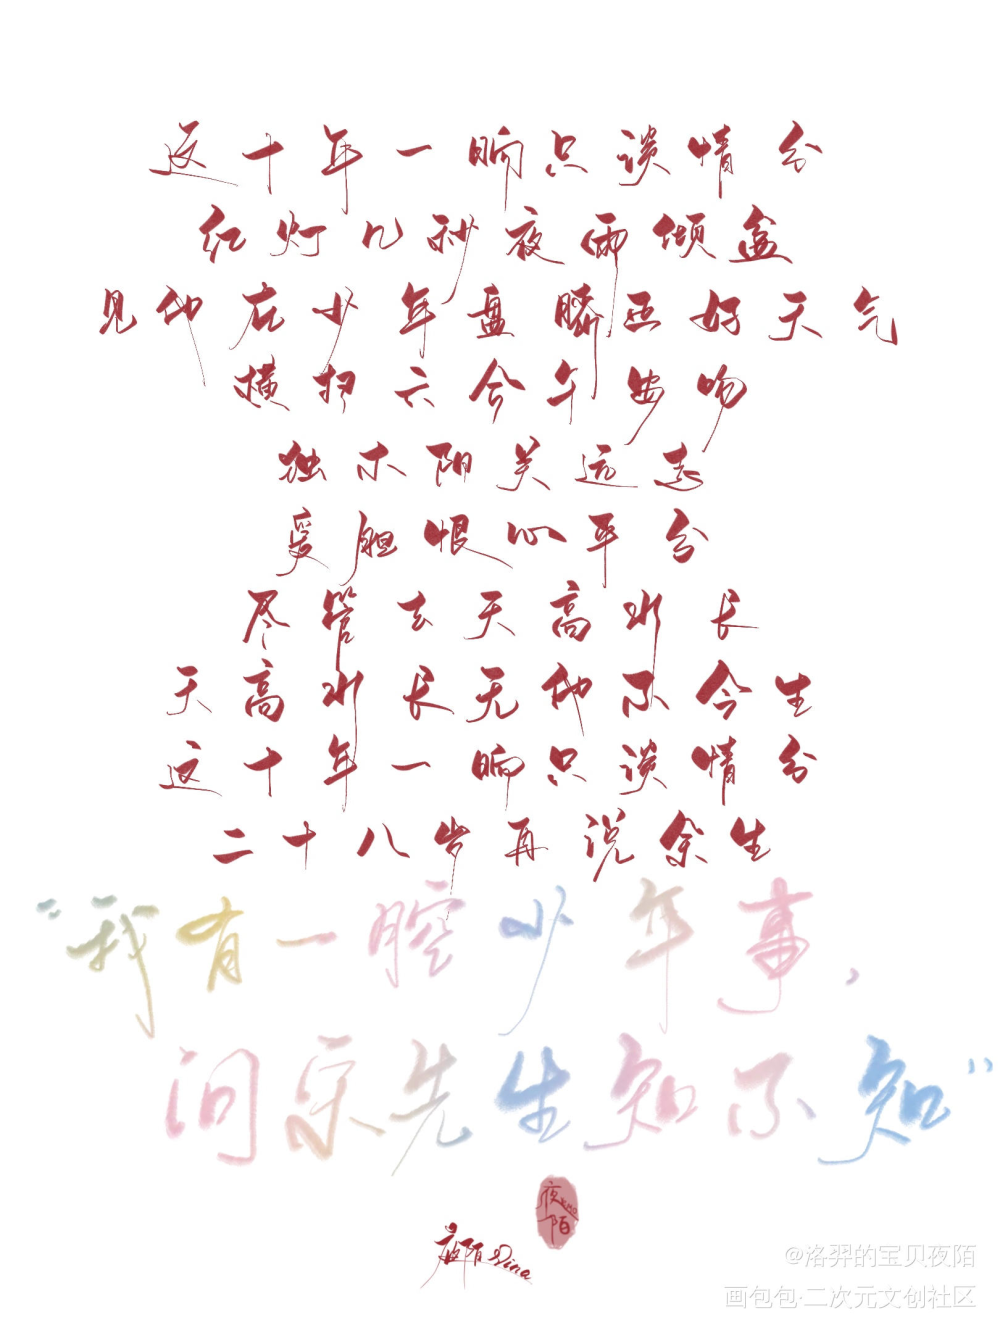 这十年一晌只谈情分
红灯几秒夜雨倾盆
见他庇少年盘踞西好天气
横扫六合午安吻
独木阳关远志
爱胆恨心平分
尽管去天高水长
天高水长无他不今生
这十年一晌只谈情分
二十八岁再说余生
“我有一腔少年事，
问宋先生知不知”
夜陌
夜陌Dina
@洛羿的宝贝夜陌
画包包·二次元文创社区